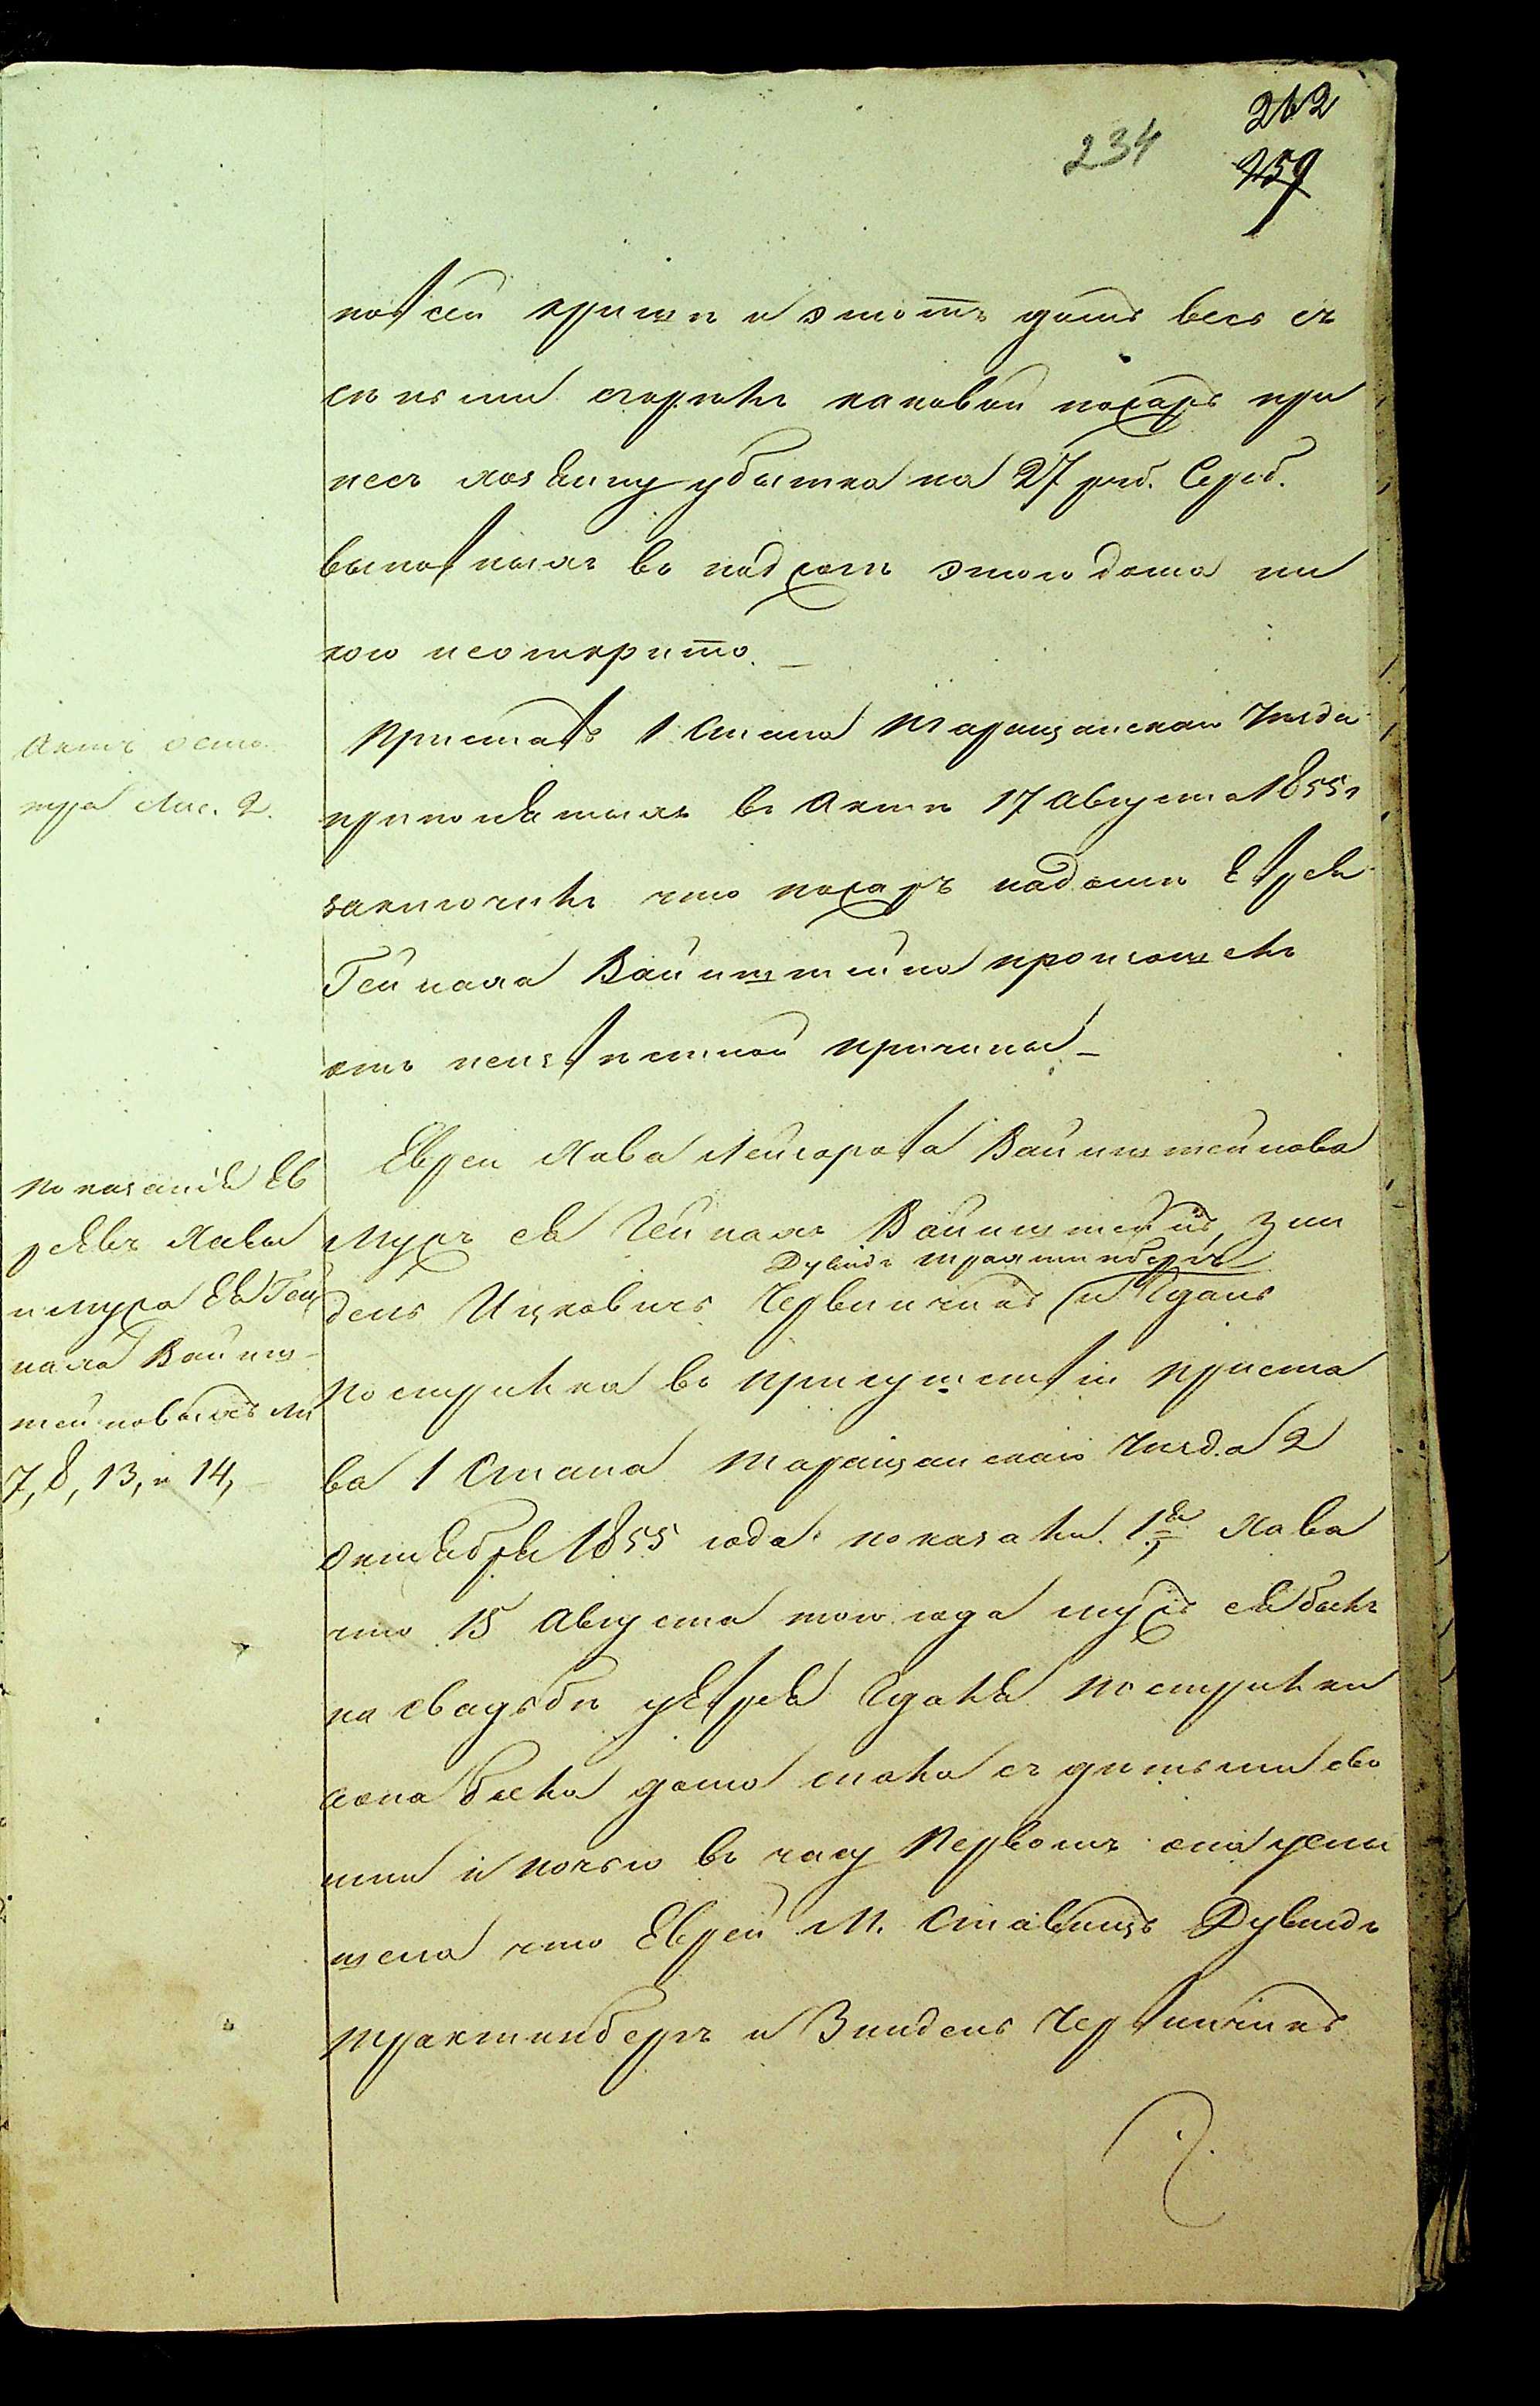 262
234
259
новой крышѣ и этотъ домъ весь съ
сѣньми сгорѣлъ каковый пожаръ при
несъ хозяину убытка на 27 руб. Сереб.
виновныхъ въ поджогѣ этого дома ни
кого неоткрыто. —
Актъ осмо
тра Лис. 2.
Приставъ 1 Стана Таращанскаго Уѣзда
при понятыхъ въ Актѣ 17 Августа 1855 г
заключилъ что пожаръ надомъ Еврея
Гейнаха Вайнштейна произошелъ
отъ неизвѣстной причины —
Показанія Ев
реевъ Хавы
и мужа ея Гей
наха Вайнш-
тейновыхъ ли
7, 8, 13, и 14, —
Евреи Хава Лейзорова Вайнштейнова
Мужъ ея Гейнахъ Вайнштейнъ, Зин
Дувидъ Трахтинбергъ
дель Ицковичъ Червинчикъ и Сдань
Пострилка въ присутствіи приста
ва 1 Стана Таращанскаго Уѣзда 2
Октября 1855 года показали. 1я, Хава
что 15 Августа того года мужъ ея былъ
на свадьбѣ у Еврея Сданя Пострилки
а она была дома спала съ дитьми сво
ими и ночью въ часу Первомъ она услы
шела что Евреи М. Ставищъ Дувидъ
Трахтинбергъ и Зиндель Червинчикъ